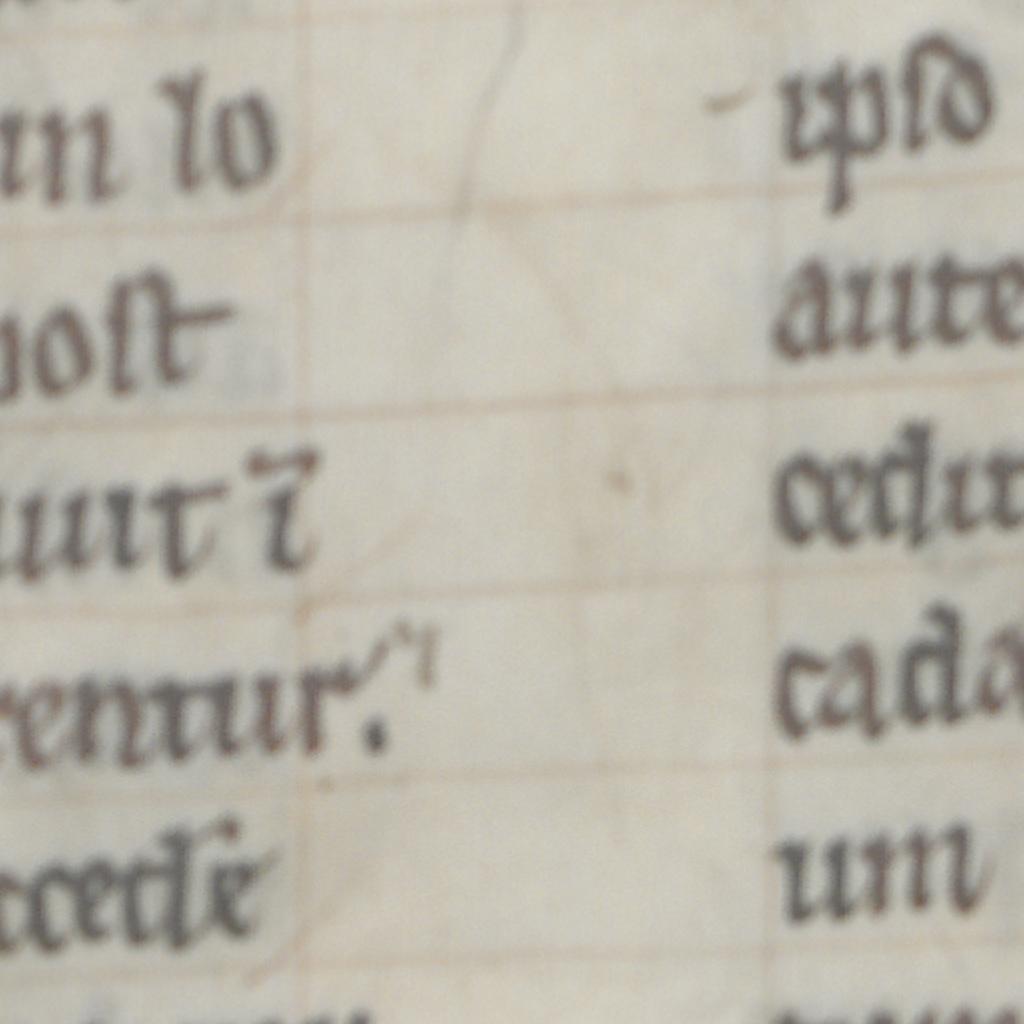 in lo
uost
uit ī
rentur.
ccedē
ipso
aute
cedit
cada
um